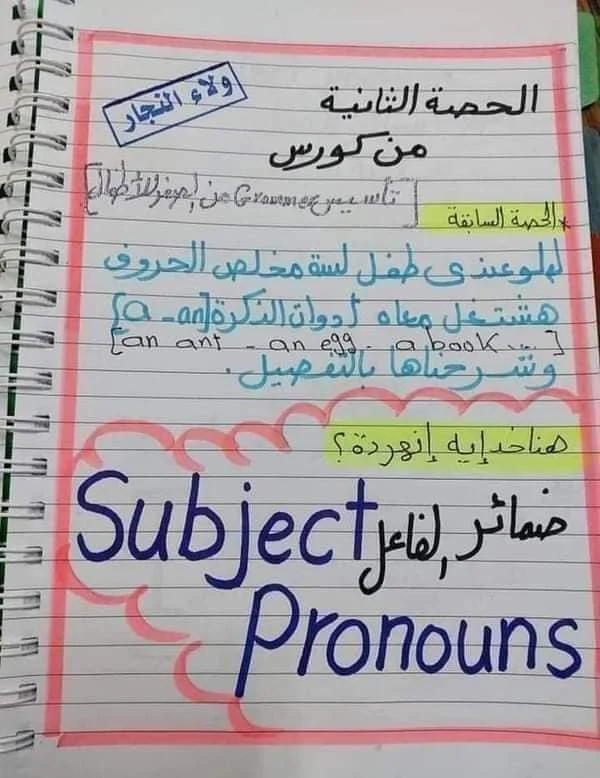 ولاء النجار
الحصة الثانية
من كورس
[تأسيس Grammer من الصفر للأطفال]
*الحصة السابقة
لو عندى طفل لسة مخلص الحروف
هشتغل معاه أدوات النكرة [a - an]
[an ant - an egg - a book ...]
وشرحناها بالتفصيل.
هناخد إيه إنهردة؟
ضمائر الفاعل Subject
Pronouns